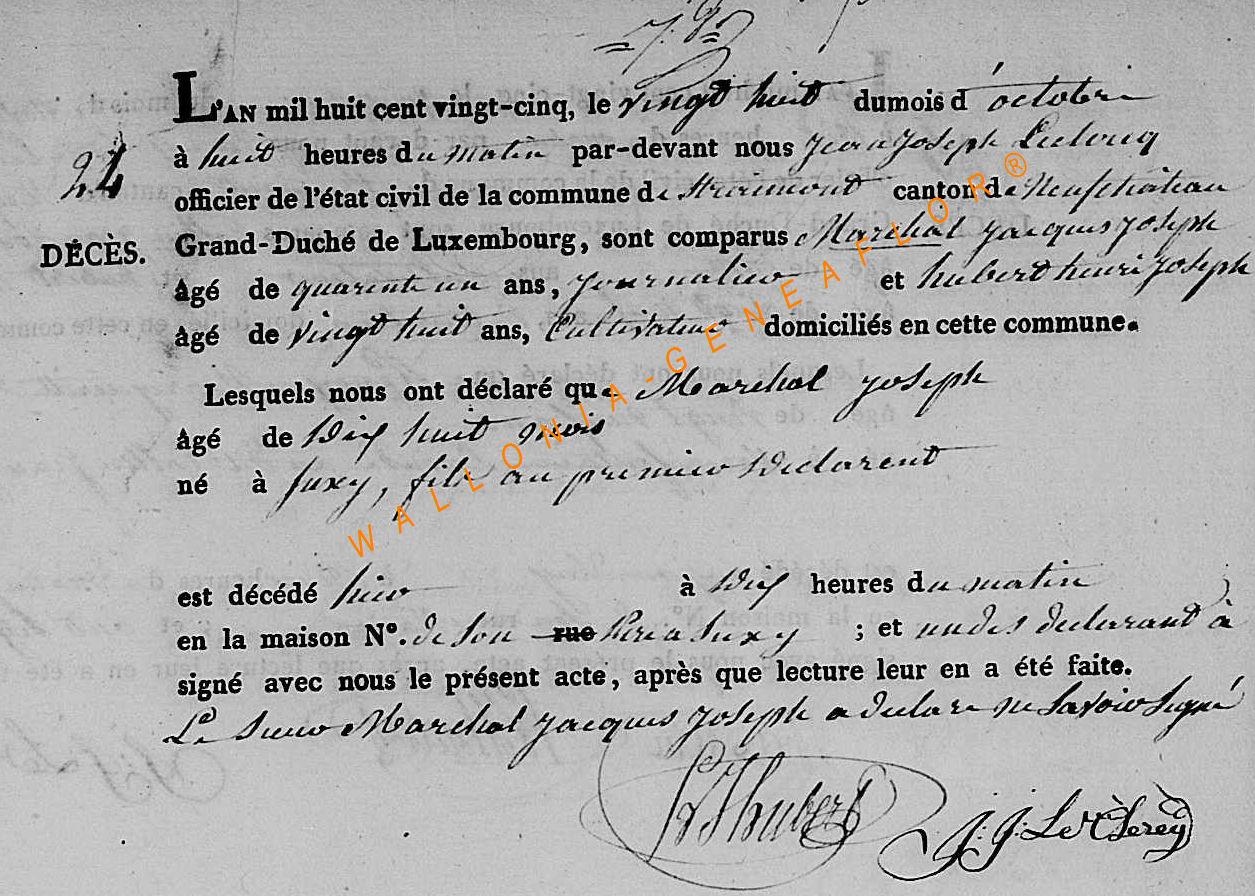 L'AN mil huit cent vingt-cinq, le vingt huit dumois d'octobre
à huit heures du matin par-devant nous Jean Joseph
24
officier de l'état civil de la commune de Straimont canton de Neufchateau
DÉCÈS. Grand-Duché de Luxembourg, sont comparus Marchal jacques joseph
âgé de quarente un ans, journalier et hubert henri joseph
âgé de vingt huit ans, Cultivateur domiciliés en cette commune.
Lesquels nous ont déclaré que Marchal joseph
âgé de dix huit mois
né à Suxy, fils au premier declarent
est décédé hier à dix heures du matin
en la maison N°. de son rue Pere a Suxy ; et un des declarant à
signé avec nous le présent acte, après que lecture leur en a été faite.
Le sieur Marchal jacques joseph a declare ne savoir signé
hubert
J: J:
WALLONIA-GENEAFLOR®